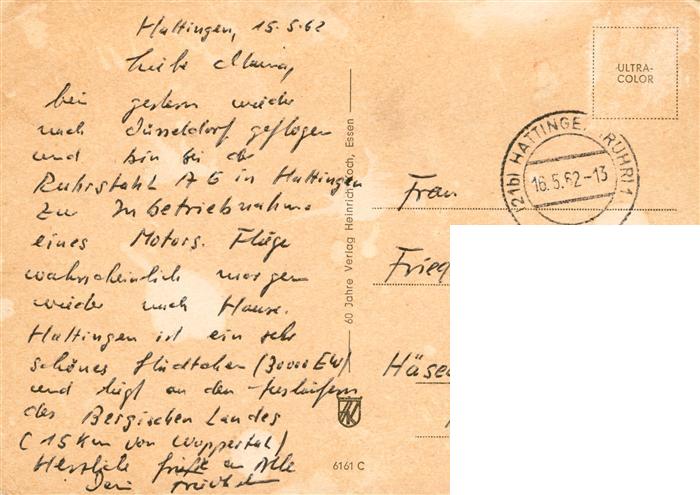 Hattingen, 15.5.62
Liebe Mama,
bin gestern wieder
nach Düsseldorf geflogen
und bin bei der
Ruhrstahl AG in Hattingen
zur Inbetriebnahme
eines Motors. Fliege
wahrscheinlich morgen
wieder nach Hause.
Hattingen ist ein sehr
schönes Städtchen (30000 EW)
und liegt an den Ausläufern
des Bergischen Landes
(15 Km von Wuppertal)
Herzliche Grüße an Alle
Dein
60 Jahre Verlag Heinrich Koch, Essen
6161 C
ULTRA-
COLOR
(21b) HATTINGEN (RUHR) 1
16.5.62-13
Frau
Fried
Häse